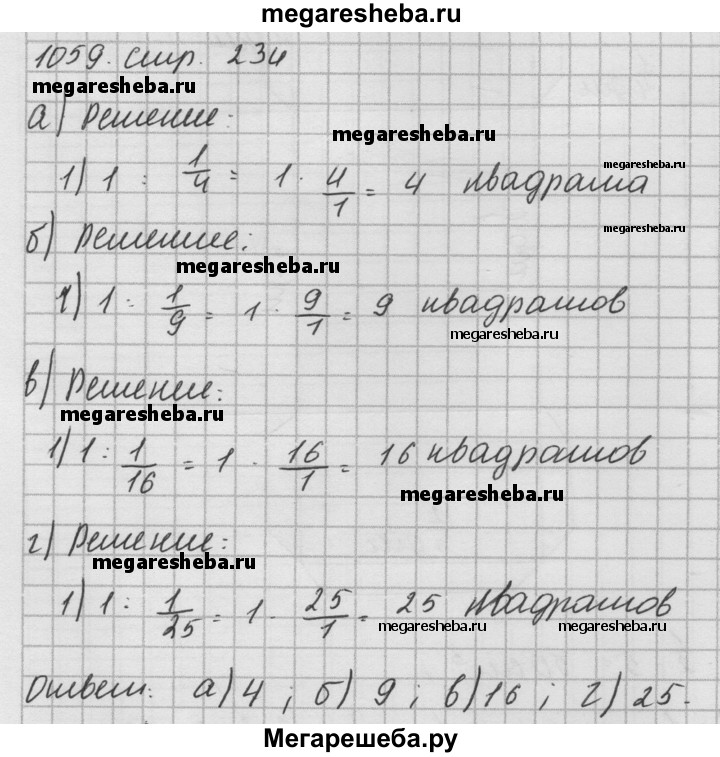 megaresheba.ru
1059. стр. 234
megaresheba.ru
а) Решение:
megaresheba.ru
megaresheba.ru
1) 1 : 1/4 = 1 · 4/1 = 4 квадрата
megaresheba.ru
б) Решение:
megaresheba.ru
1) 1 : 1/9 = 1 · 9/1 = 9 квадратов
megaresheba.ru
в) Решение:
megaresheba.ru
1) 1 : 1/16 = 1 · 16/1 = 16 квадратов
megaresheba.ru
г) Решение:
megaresheba.ru
1) 1 : 1/25 = 1 · 25/1 = 25 квадратов
megaresheba.ru megaresheba.ru
Ответ: а) 4 ; б) 9 ; в) 16 ; г) 25.
Мегарешеба.ру